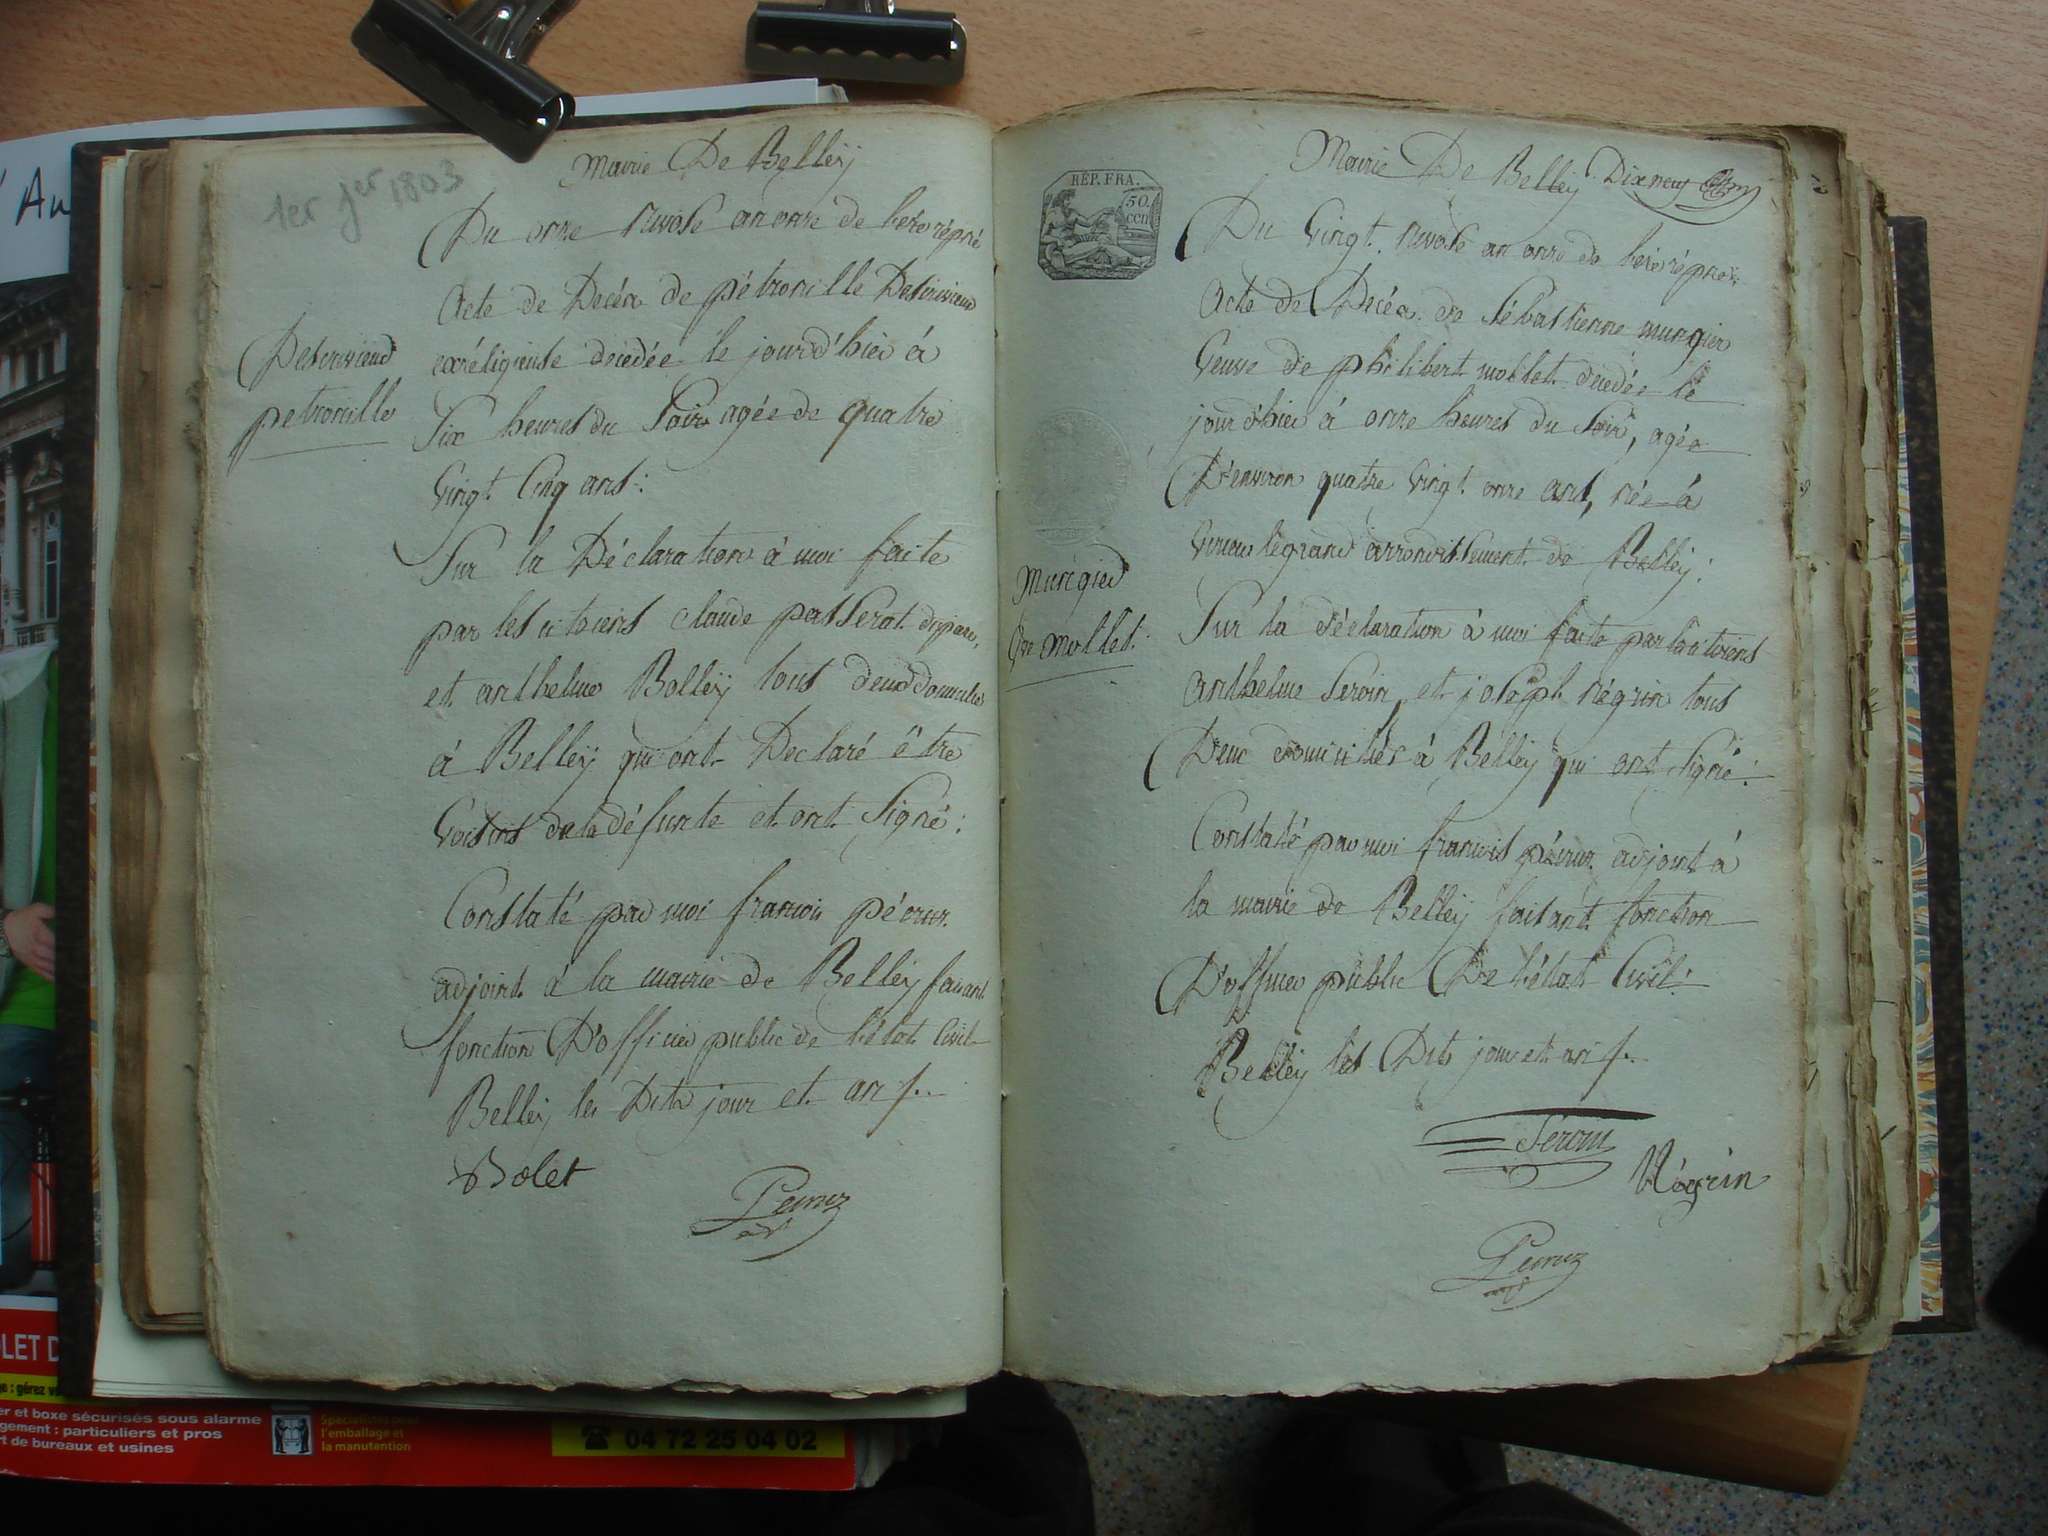 1er jer 1803
Mairie De Belleÿ
Du onze Nivose an onze de l'ere répne
Acte de Decéa de pétronille
exréligieuse decedée le jour d'hier á
Six heures du Soir agée de quatre
Vingt Cinq ans:
petronille
Sur la Déclaration á moi faite
par les citoiens claude passerat
et anthelme Bolleÿ tous deux domicilies
á Belleÿ qui ont Declaré être
Voisins de la défunte et ont Signé:
Constaté par moi francois
adjoint á la mairie de Belleÿ faisant
fonction D'officier public de l'état Civil
Belleÿ les Dits jour et an /..
Bolet
Mairie De Belleÿ Dixneuf
RÉP. FRA.
50.
cen
Du Vingt Nivose an onze de l'ere répne:
Acte de Decéa de Sébastienne mungier
Veuve de philibert mollet decedée le
jour d'hier á onze heures du Soir, agée
D'environ quatre Vingt onze ans, née á
Virieu legrand arrondissement de Belleÿ:
Vve Mollet:
Sur la déclaration á moi faite par les citoiens
anthelme Seroin et joseph négrin tous
Deux domiciliés á Belleÿ qui ont Signé:
Constaté par moi francois adjoint á
la mairie de Belleÿ faisant fonction
D'officier public De l'état Civil:
Belleÿ les Dits jour et an /..
Seroin
Négrin
Au
LET D
e : gérez v
er et boxe sécurisés sous alarme
gement : particuliers et pros
rt de bureaux et usines
Spécialistes pour
l'emballage et
la manutention
04 72 25 04 02